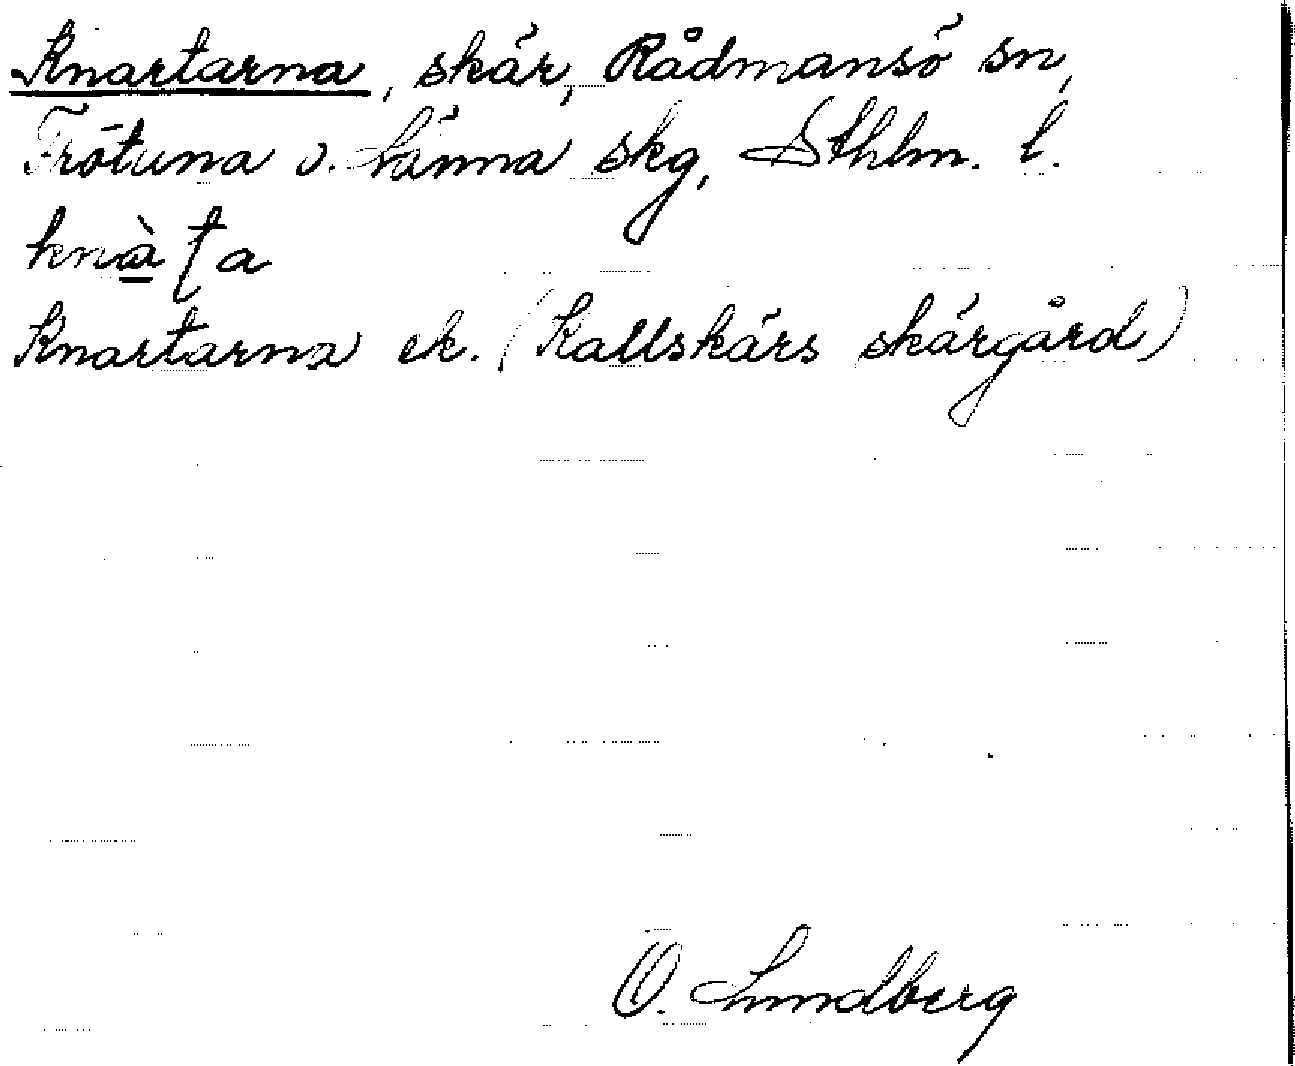 Knartarna, skär, Rådmansö sn,
Frötuna o. Länna skg, Sthlm. l.
knà ʈa
Knartarna ek. (Kallskärs skärgård)
O. Lundberg